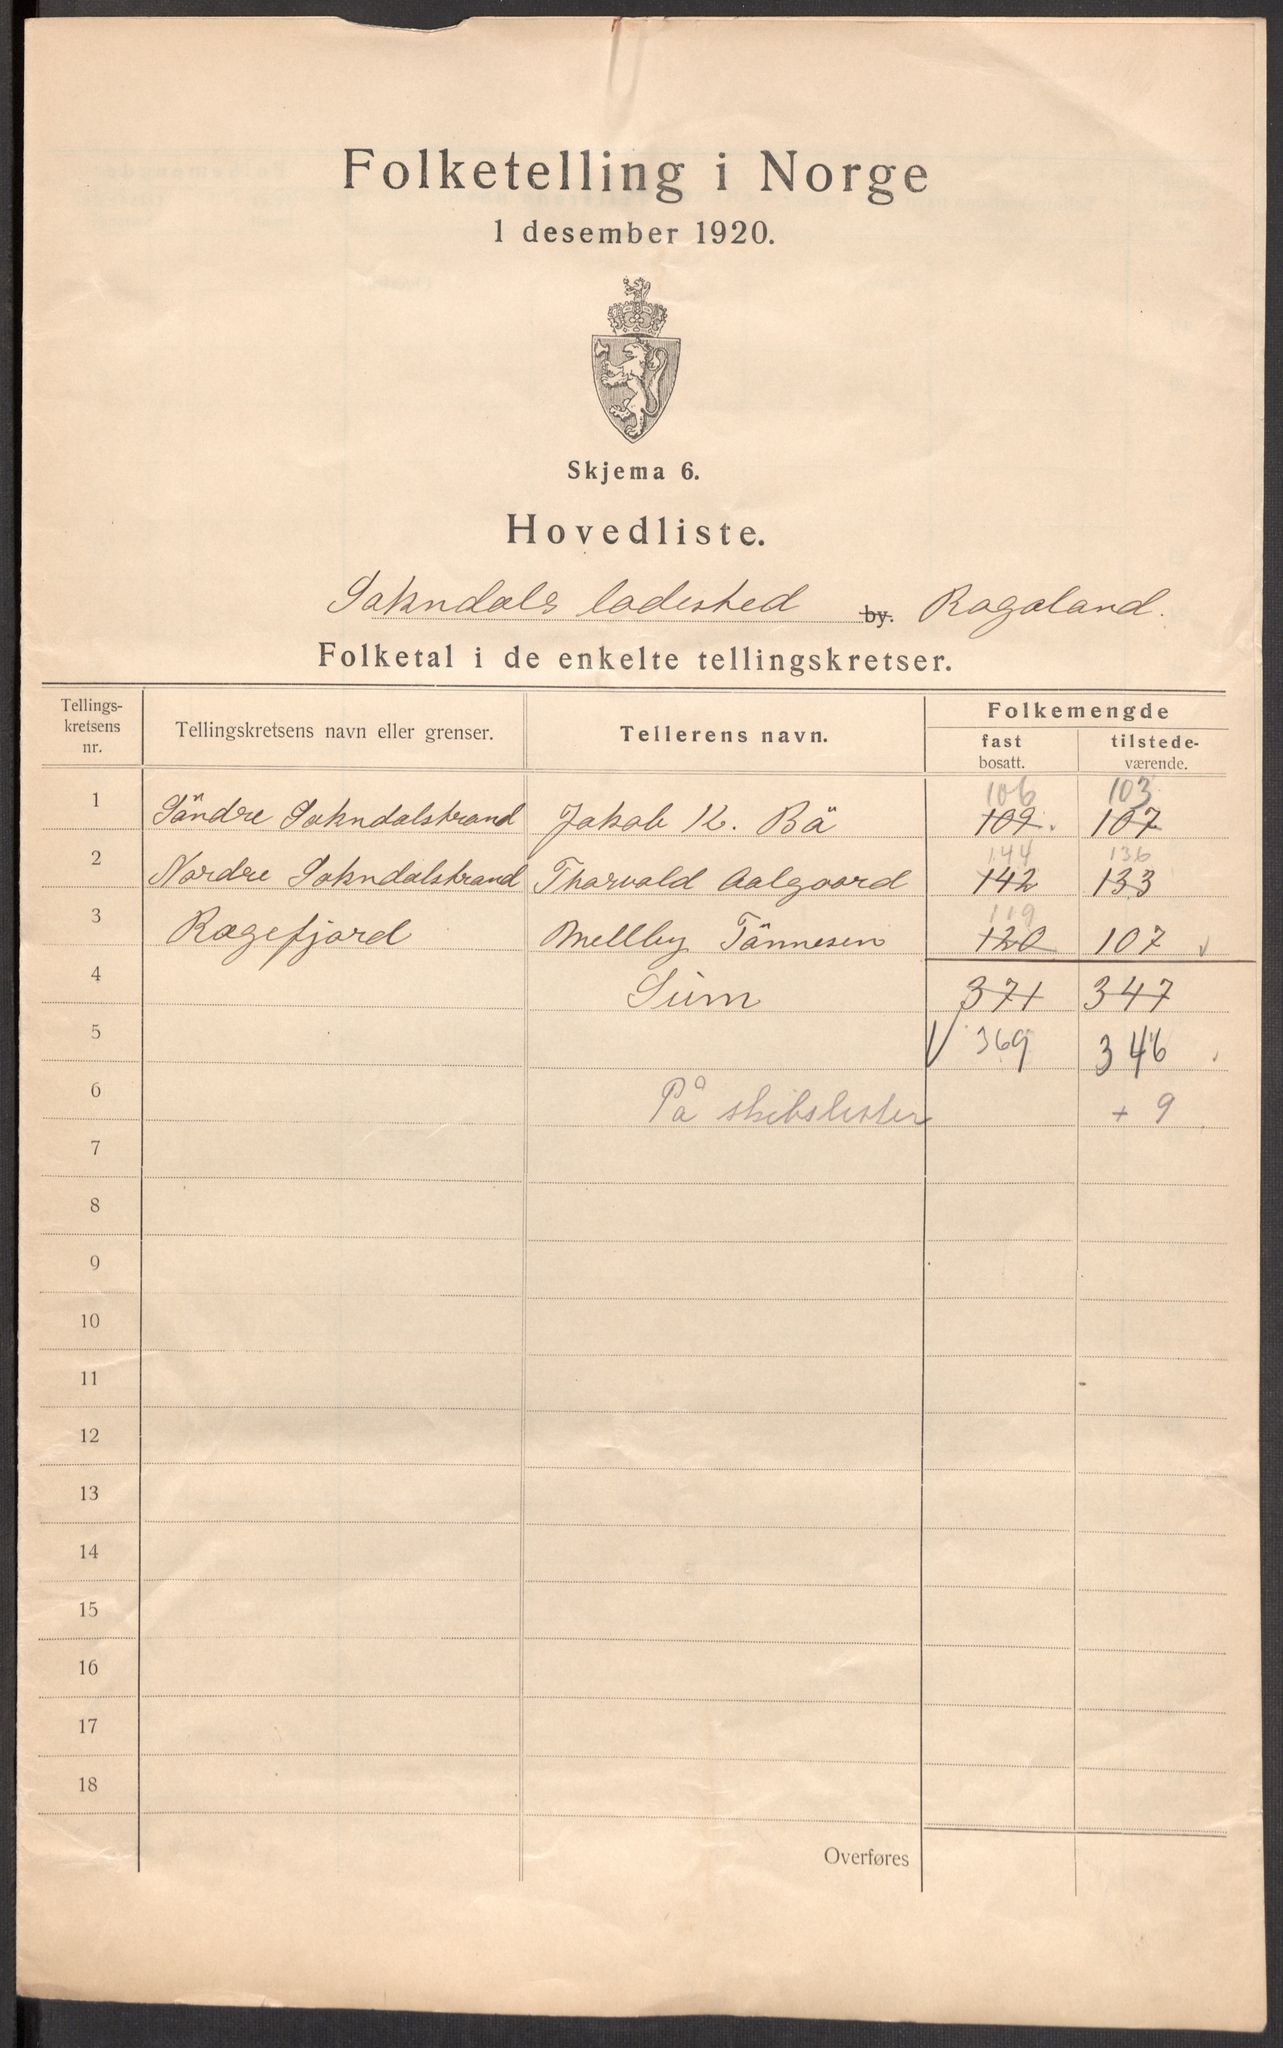 Folketelling i Norge
1 desember 1920.
Skjema 6.
Hovedliste.
Sokndals ladested by. Rogaland.
Folketal i de enkelte tellingskretser.
Tellings-kretsens nr. Tellingskretsens navn eller grenser. Tellerens navn. Folkemengde
fast bosatt. tilstede-værende.
106 103
1 Söndre Sokndalstrand Jakob K. Bö 109. 107
144 136
2 Nordre Sokndalstrand Thorvald Aalgaard 142 133
119
3 Rægefjord Mellby Tönnesen 120 107 v
4 Sum 371 347
5 V 369 346
6 På skibslister + 9
7
8
9
10
11
12
13
14
15
16
17
18
Overføres